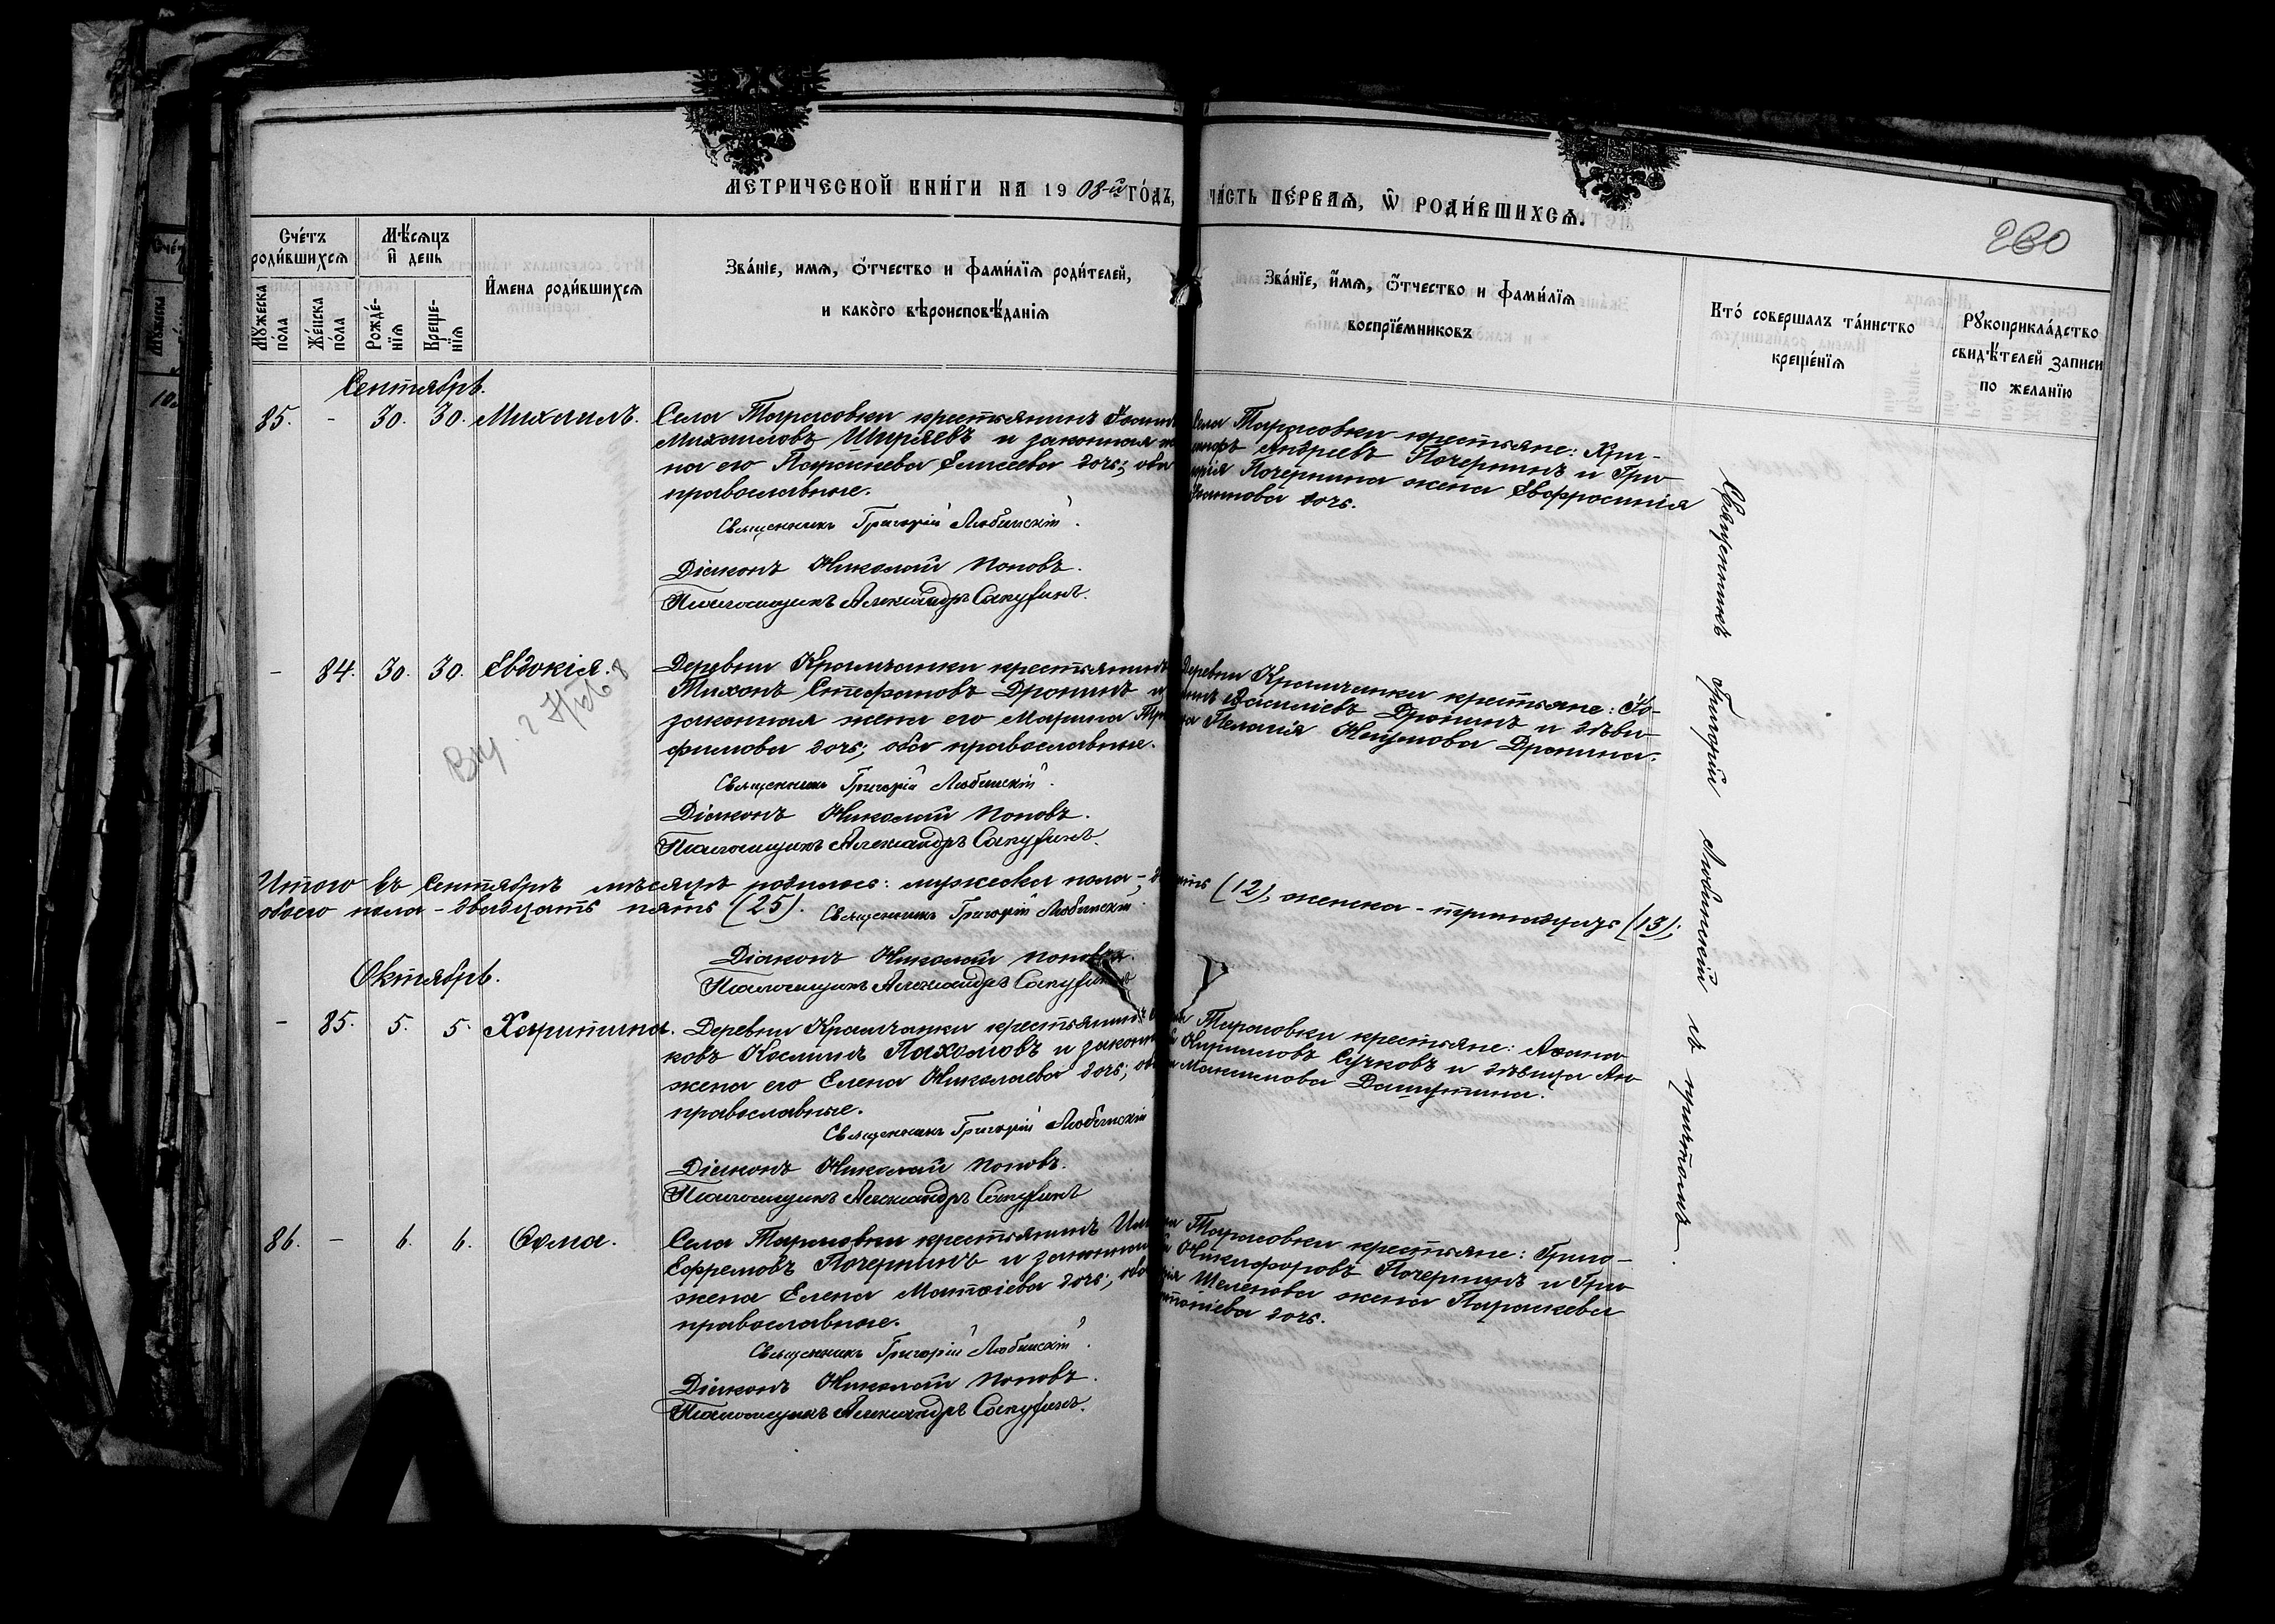 МЕТРИЧЕСКОЙ КНИГИ НА 1908-й ГОДЪ, ЧАСТЬ ПЕРВАЯ, Ѡ РОДИВШИХСЯ.
260
Счетъ родившихся
Мужеска пола
Женска пола
Мѣсяцъ и день
Рожденія
Крещенія
Имена родившихся
Званіе, имя, отчество и фамилія родителей,
и какого вѣроисповѣданія
Званіе, имя, отчество и фамилія
воспріемниковъ
Кто совершалъ таинство
крещенія
Рукоприкладство
свидѣтелей записи
по желанію
Сентябрь.
85. - 30. 30. Михаилъ.
Села Тарасовки крестьянинъ
Михаиловъ Ширяевъ и законная
на его Параскева Елисеева дочь; оба
православные.
Священникъ Григорій Любимскій.
Діаконъ Николай Поповъ.
Псаломщикъ Александръ
Села Тарасовки крестьяне:
Андреевъ Почернинъ и Гри-
Почернина жена Евфросинія
дочь.
- 84. 30. 30. Евдокія.
Деревни Крымчанки крестьянинъ
Тихонъ Стефановъ Дронинъ и
законная жена его Марина Тро-
фимова дочь; оба православные.
Священникъ Григорій Любимскій.
Діаконъ Николай Поповъ.
Псаломщикъ Александръ
Деревни Крымчанки крестьяне:
Василіевъ Дронинъ и дѣви-
ца Пелагія Наумова Дронина.
Итого въ Сентябрѣ мѣсяцѣ родилось: мужеска пола - (12), женска - тринадцать (13);
обоего пола - двадцать пять (25).
Священникъ Григорій Любимскій
Діаконъ Николай Поповъ.
Псаломщикъ Александръ
Октябрь.
- 85. 5. 5. Харитина.
Деревни Крымчанки крестьянинъ
ковъ Косминъ Пахомовъ и законная
жена его Елена Николаева дочь; оба
православные.
Священникъ Григорій Любимскій
Діаконъ Николай Поповъ.
Псаломщикъ Александръ
Тарасовки крестьяне: Аѳана-
Кирилловъ Сучковъ и дѣвица Ан-
Максимова
86. - 6. 6. Ѳома.
Села Тарасовки крестьянинъ
Ефремовъ Почернинъ и законная
жена Елена Матѳіева дочь; оба
православные.
Священникъ Григорій Любимскій.
Діаконъ Николай Поповъ.
Псаломщикъ Александръ
Тарасовки крестьяне: Григо-
Никифоровъ Почернинъ и Гри-
жена Параскева
дочь.
Священникъ Григорій Любимскій съ причтомъ.